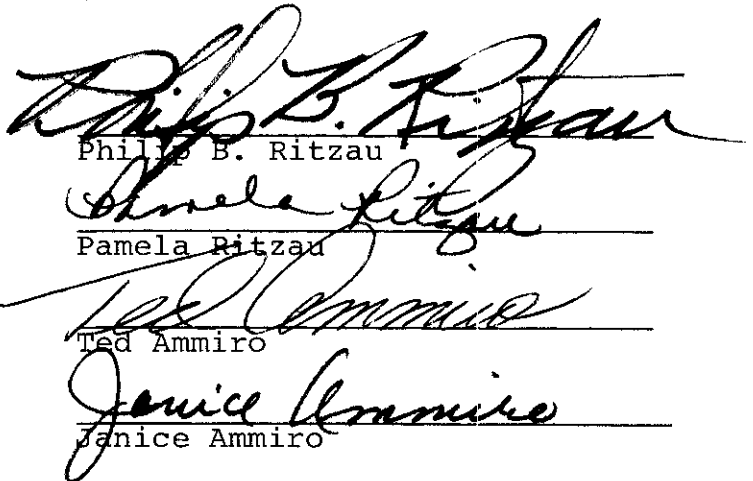 Philip B. Ritzau
Philip B. Ritzau
Pamela Ritzau
Pamela Ritzau
Ted Ammiro
Ted Ammiro
Janice Ammiro
Janice Ammiro